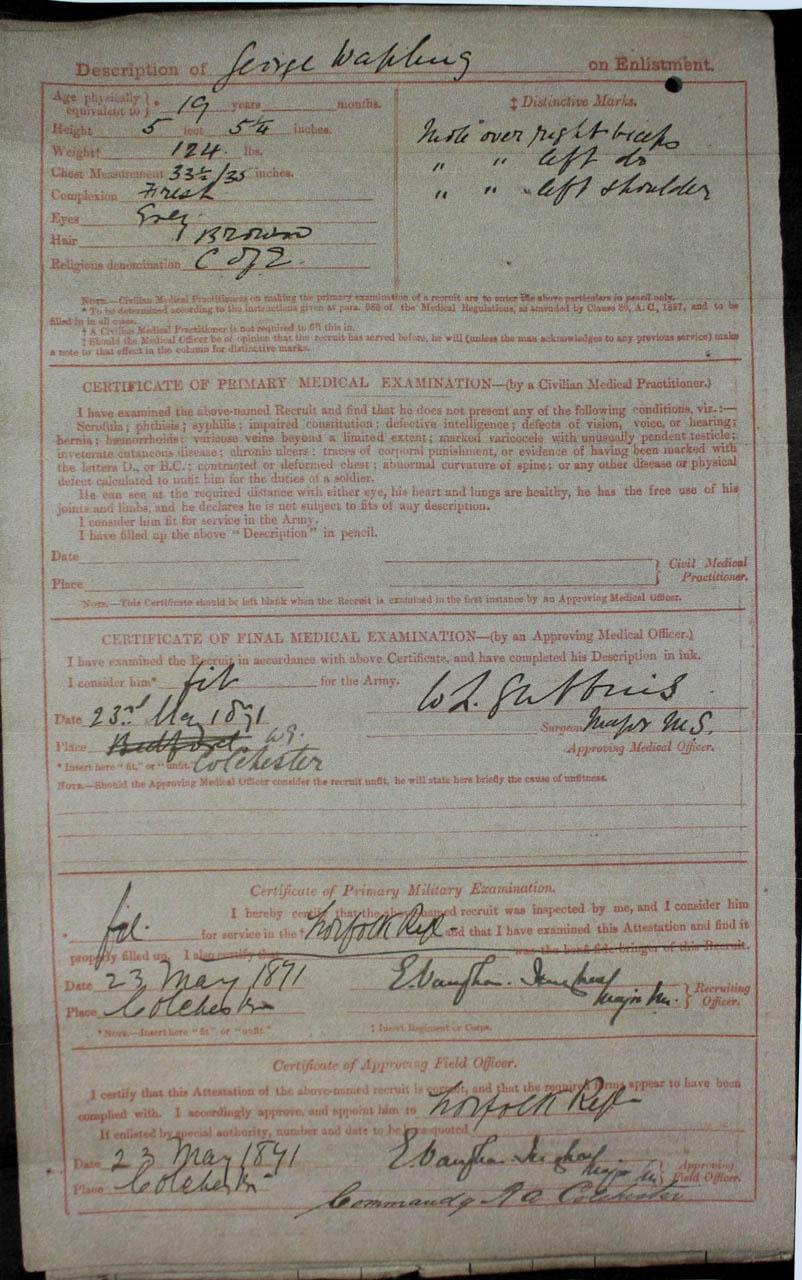 Description of George Wapling on Enlistment.
Age physically equivalent to } * 19 years months.
Height 5 feet 5¼ inches.
Weight† 124 lbs.
Chest Measurement 33½/35 inches.
Complexion Fresh
Eyes Grey
Hair Brown
Religious denomination C of E.
‡ Distinctive Marks.
Mole over right biceps
" " left do
" " left shoulder
NOTE.—Civilian Medical Practitioners on making the primary examination of a recruit are to enter the above particulars in pencil only.
* To be determined according to the instructions given at para. of the Medical Regulations, as amended by Clause A. C., 1887, and to be
filled in in all cases.
† A Civilian Medical Practitioner is not required to fill this in.
‡ Should the Medical Officer be of opinion that the recruit has served before, he will (unless the man acknowledges to any previous service) make
a note to that effect in the column for distinctive marks.
CERTIFICATE OF PRIMARY MEDICAL EXAMINATION—(by a Civilian Medical Practitioner.)
I have examined the above-named Recruit and find that he does not present any of the following conditions, viz.:—
Scrofula; phthisis; syphilis; impaired constitution; defective intelligence; defects of vision, voice, or hearing;
hernia; hæmorrhoids; varicose veins beyond a limited extent; marked varicocele with unusually pendent testicle;
inveterate cutaneous disease; chronic ulcers; traces of corporal punishment, or evidence of having been marked with
the letters D., or B.C.; contracted or deformed chest; abnormal curvature of spine; or any other disease or physical
defect calculated to unfit him for the duties of a soldier.
He can see at the required distance with either eye, his heart and lungs are healthy, he has the free use of his
joints and limbs, and he declares he is not subject to fits of any description.
I consider him fit for service in the Army.
I have filled up the above "Description" in pencil.
Date
Place
} Civil Medical Practitioner.
NOTE.—This Certificate should be left blank when the Recruit is examined in the first instance by an Approving Medical Officer.
CERTIFICATE OF FINAL MEDICAL EXAMINATION—(by an Approving Medical Officer.)
I have examined the Recruit in accordance with above Certificate, and have completed his Description in ink.
I consider him* fit for the Army.
Date 23rd May 1891
Surgeon Major M.S.
Place Bedford
Approving Medical Officer.
* Insert here "fit," or "unfit." Colchester
NOTE.—Should the Approving Medical Officer consider the recruit unfit, he will state here briefly the cause of unfitness.
Certificate of Primary Military Examination.
I hereby certify that the above-named recruit was inspected by me, and I consider him
* fit for service in the † Norfolk Regt and that I have examined this Attestation and find it
properly filled up. I also certify that was the bonâ-fide bringer of this Recruit.
Date 23 May 1891
Place Colchester
E. Vaughan Major } Recruiting Officer.
* NOTE.—Insert here "fit" or "unfit." † Insert Regiment or Corps.
Certificate of Approving Field Officer.
I certify that this Attestation of the above-named recruit is correct, and that the required forms appear to have been
complied with. I accordingly approve, and appoint him to Norfolk Regt
If enlisted by special authority, number and date to be here quoted
Date 23 May 1891
Place Colchester
E. Vaughan Major } Approving Field Officer.
Commandg Colchester